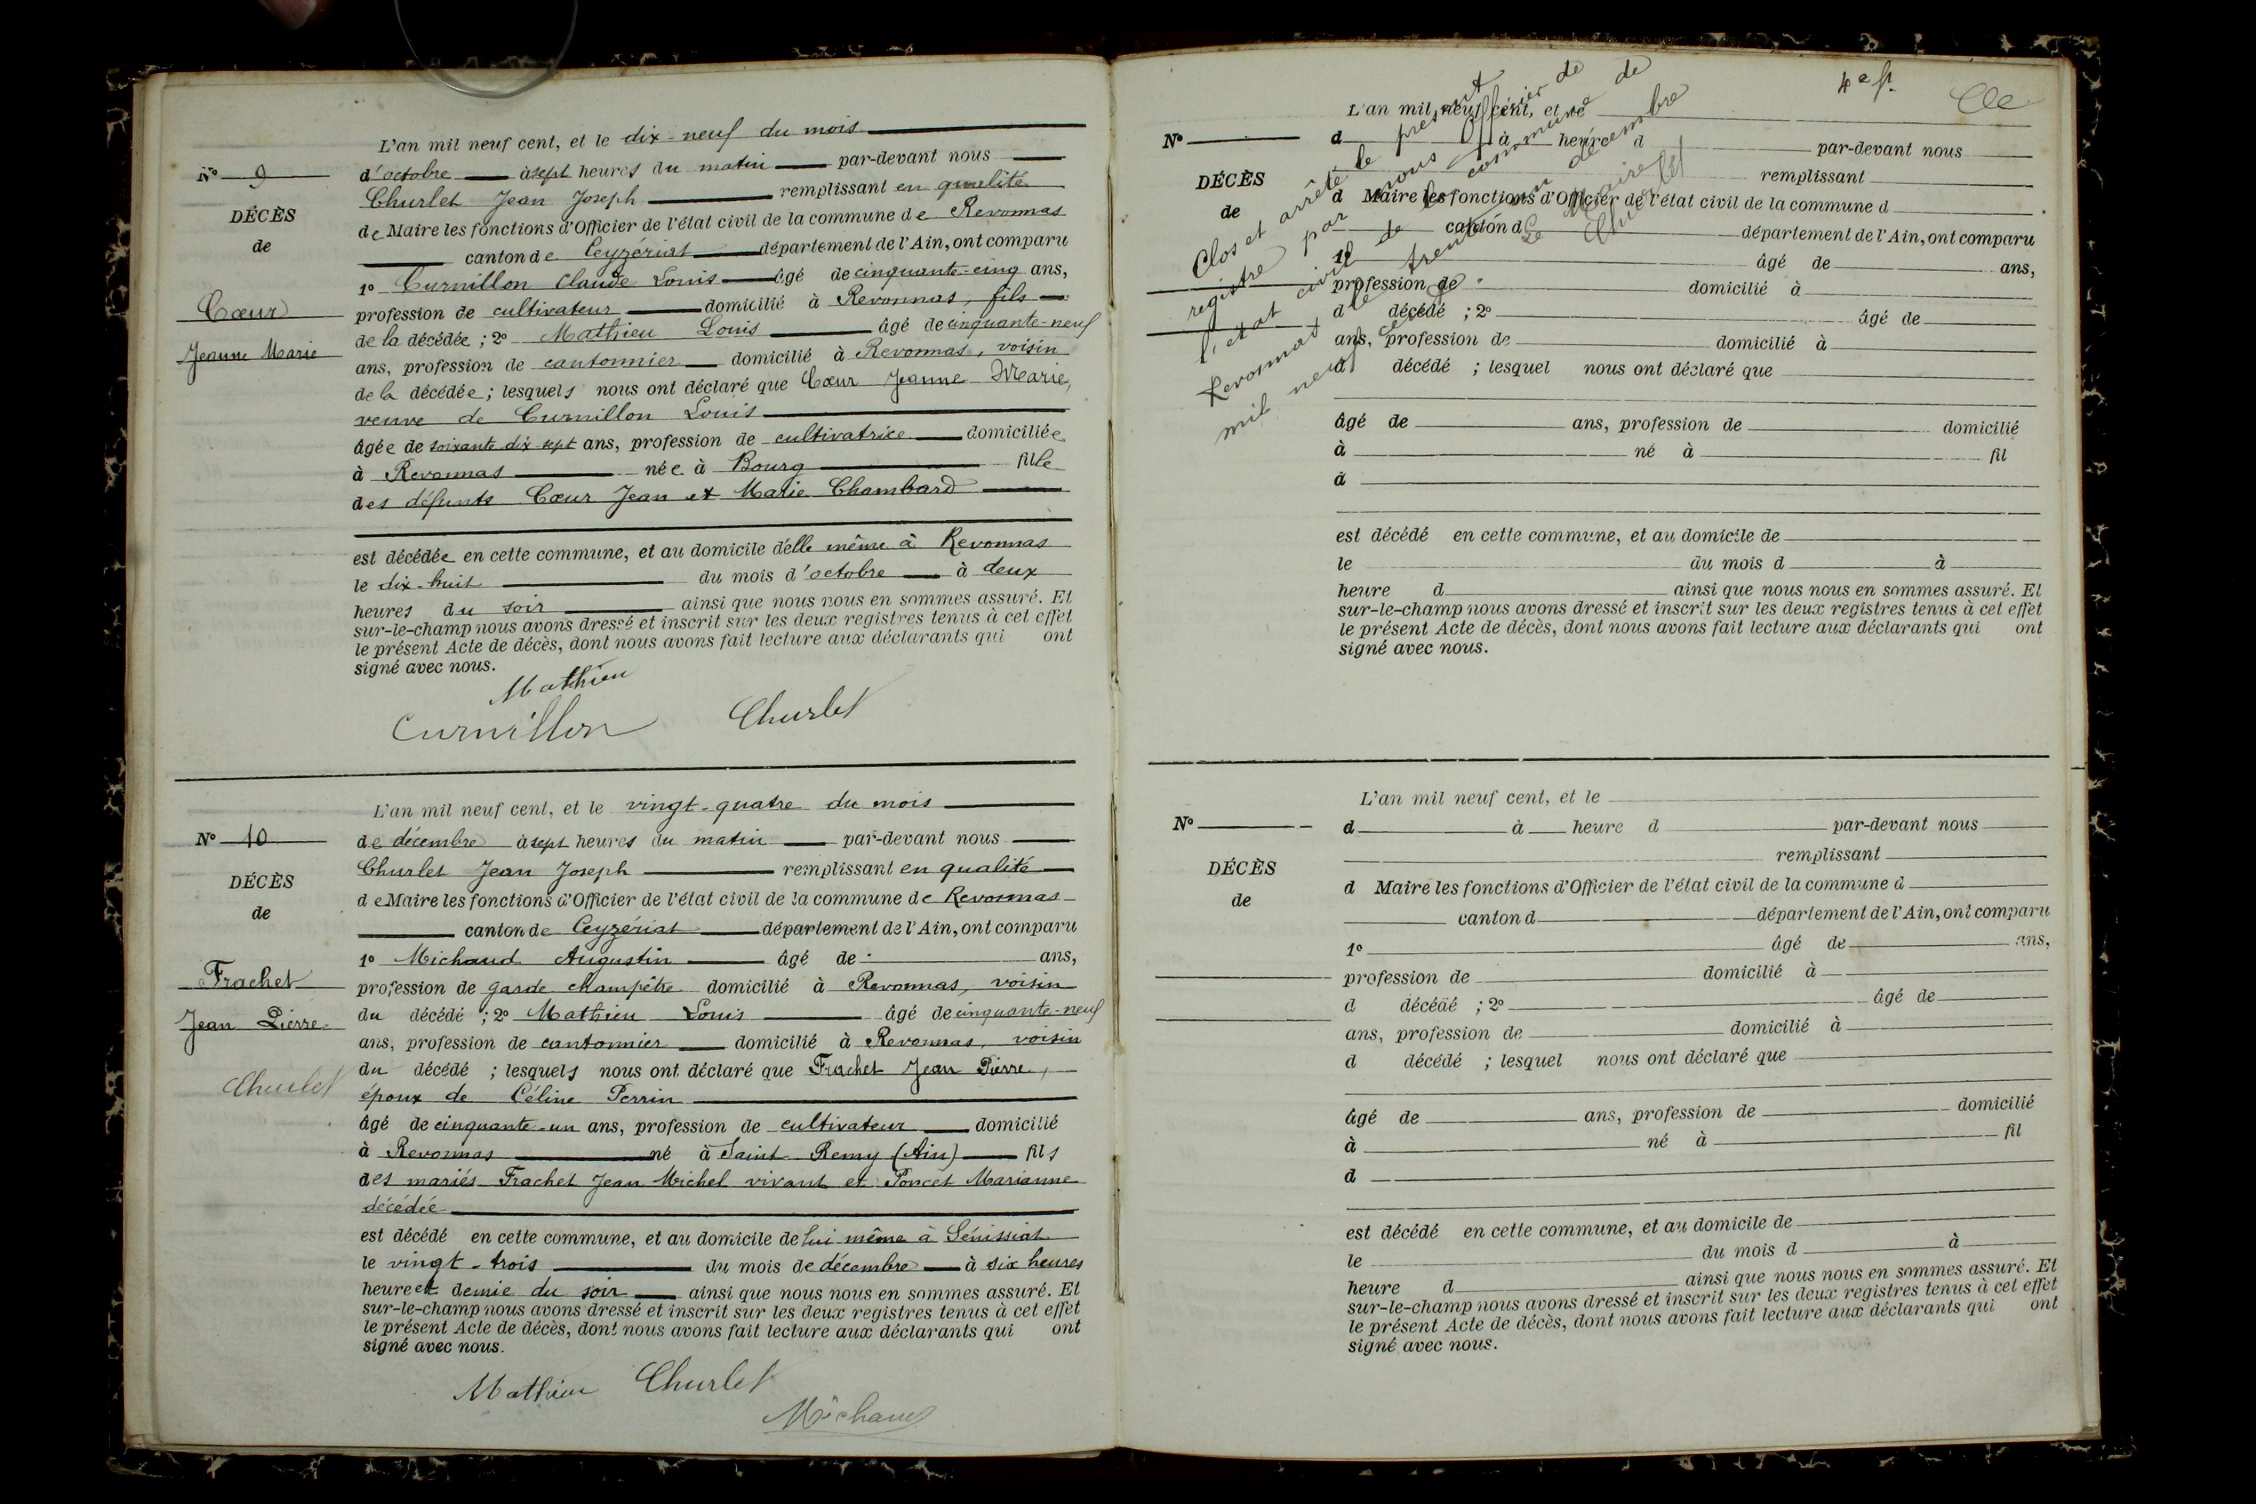 L'an mil neuf cent, et le dix-neuf du mois
N° 9
d'octobre à sept heures du matin par-devant nous
Churlet Jean Joseph remplissant en qualité
DÉCÈS
de Maire les fonctions d'Officier de l'état civil de la commune de Revonnas
de
canton de Ceyzériat département de l'Ain, ont comparu
1° Curnillon Claude Louis âgé de cinquante-cinq ans,
Cœur
profession de cultivateur domicilié à Revonnas, fils
de la décédée ; 2° Mathieu Louis âgé de cinquante-neuf
Jeanne Marie
ans, profession de cantonnier domicilié à Revonnas, voisin
de la décédée ; lesquels nous ont déclaré que Cœur Jeanne Marie,
veuve de Curnillon Louis
âgée de soixante dix sept ans, profession de cultivatrice domiciliée
à Revonnas née à Bourg fille
des défunts Cœur Jean et Marie Chambard
est décédée en cette commune, et au domicile d'elle même à Revonnas
le dix-huit du mois d'octobre à deux
heures du soir ainsi que nous nous en sommes assuré. Et
sur-le-champ nous avons dressé et inscrit sur les deux registres tenus à cet effet
le présent Acte de décès, dont nous avons fait lecture aux déclarants qui ont
signé avec nous.
Mathieu
Curnillon Churlet
L'an mil neuf cent, et le vingt-quatre du mois
N° 10
de décembre à sept heures du matin par-devant nous
Churlet Jean Joseph remplissant en qualité
DÉCÈS
de Maire les fonctions d'Officier de l'état civil de la commune de Revonnas
de
canton de Ceyzériat département de l'Ain, ont comparu
1° Michaud Augustin âgé de ans,
Frachet
profession de garde champêtre domicilié à Revonnas, voisin
Jean Pierre
du décédé ; 2° Mathieu Louis âgé de cinquante-neuf
ans, profession de cantonnier domicilié à Revonnas, voisin
du décédé ; lesquels nous ont déclaré que Frachet Jean Pierre,
Churlet
époux de Céline Perrin
âgé de cinquante-un ans, profession de cultivateur domicilié
à Revonnas né à Saint-Remy (Ain) fils
des mariés Frachet Jean Michel vivant et Poncet Marianne
décédée
est décédé en cette commune, et au domicile de lui même à Sénissiat
le vingt-trois du mois de décembre à six heures
heure et demie du soir ainsi que nous nous en sommes assuré. Et
sur-le-champ nous avons dressé et inscrit sur les deux registres tenus à cet effet
le présent Acte de décès, dont nous avons fait lecture aux déclarants qui ont
signé avec nous.
Mathieu Churlet
Michaud
4e f.
Clos et arrêté le présent
registre par nous Officier de
l'état civil de la commune de
Revonnas le trente un décembre
mil neuf cent
Le Maire
Churlet
L'an mil neuf cent, et le
N°
d à heure d par-devant nous
remplissant
DÉCÈS
d Maire les fonctions d'Officier de l'état civil de la commune d
de
canton d département de l'Ain, ont comparu
1° âgé de ans,
profession de domicilié à
d décédé ; 2° âgé de
ans, profession de domicilié à
d décédé ; lesquel nous ont déclaré que
âgé de ans, profession de domicilié
à né à fil
d
est décédé en cette commune, et au domicile de
le du mois d à
heure d ainsi que nous nous en sommes assuré. Et
sur-le-champ nous avons dressé et inscrit sur les deux registres tenus à cet effet
le présent Acte de décès, dont nous avons fait lecture aux déclarants qui ont
signé avec nous.
L'an mil neuf cent, et le
N°
d à heure d par-devant nous
remplissant
DÉCÈS
d Maire les fonctions d'Officier de l'état civil de la commune d
de
canton d département de l'Ain, ont comparu
1° âgé de ans,
profession de domicilié à
d décédé ; 2° âgé de
ans, profession de domicilié à
d décédé ; lesquel nous ont déclaré que
âgé de ans, profession de domicilié
à né à fil
d
est décédé en cette commune, et au domicile de
le du mois d à
heure d ainsi que nous nous en sommes assuré. Et
sur-le-champ nous avons dressé et inscrit sur les deux registres tenus à cet effet
le présent Acte de décès, dont nous avons fait lecture aux déclarants qui ont
signé avec nous.